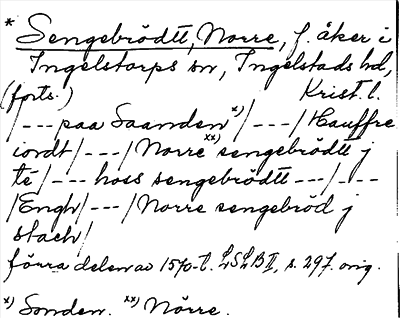 * Sengebrödtt, Norre, f. åker i
Ingelstorps sn, Ingelstads hd,
(forts.) Krist. l.
/--- paa Saanden x)/---/ Hauffre
iordt/---/Norre xx) sengebrödtt j
té/--- hoss sengebrödtt ---/---
/Engh/---/Norre sengebröd j
stach/
förra delen av 1570-t. LSLB II, s. 297. orig.
x) Sonden. xx) Nörre.